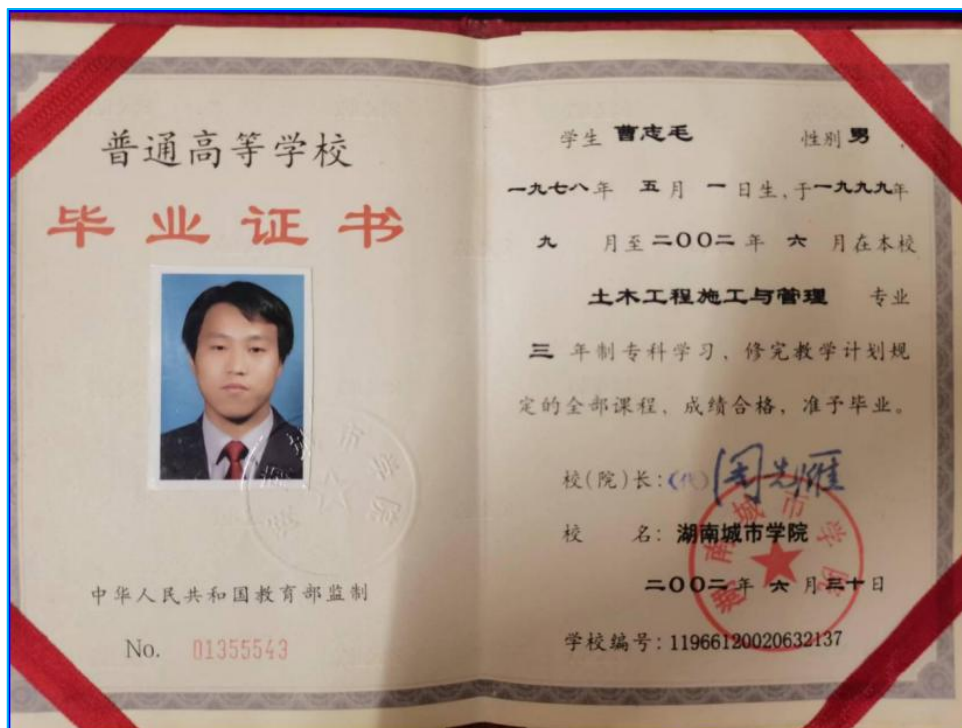 普通高等学校
毕业证书
湖南城市学院
中华人民共和国教育部监制
No. 01355543
学生 曹志毛 性别 男
一九七八年 五月 一日生,于一九九九年
九 月至二〇〇二年 六 月在本校
土木工程施工与管理 专业
三 年制专科学习、修完教学计划规
定的全部课程、成绩合格,准予毕业。
校(院)长:(代)周先雁
校 名: 湖南城市学院
湖南城市学院
二〇〇二年 六 月三十日
学校编号:11966120020632137